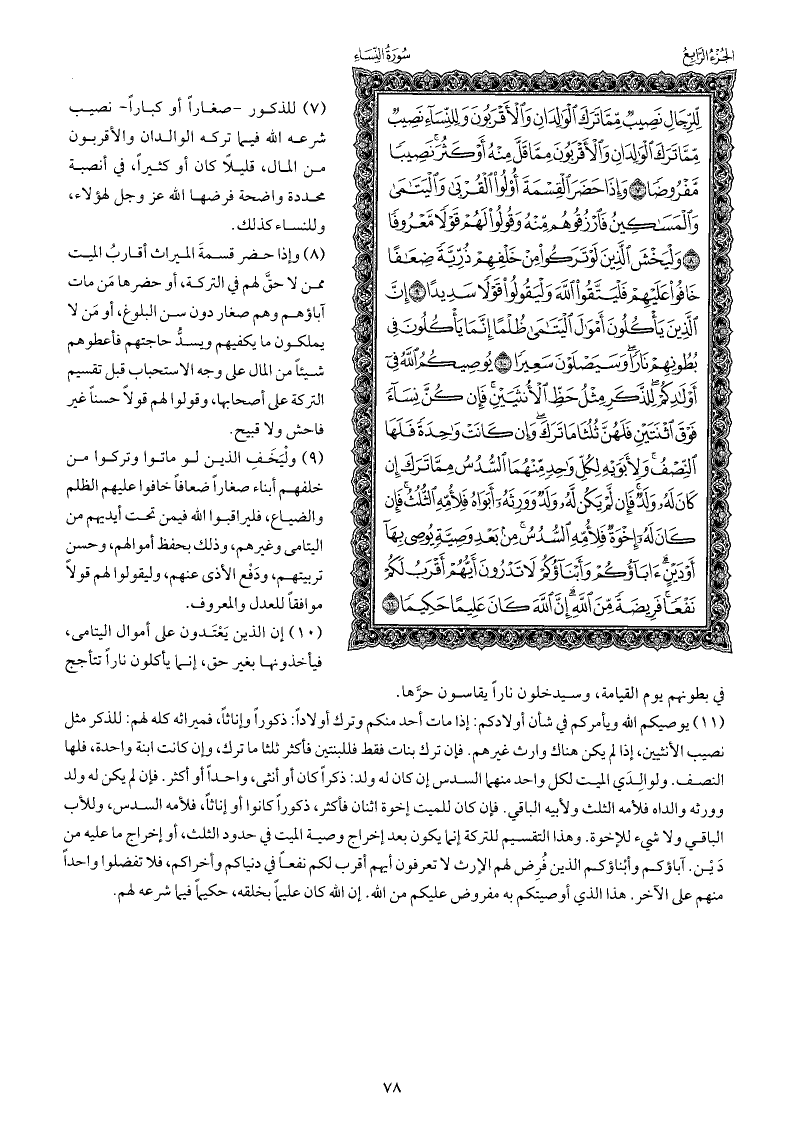 الجزء الرابع
سورة النساء
لِّلرِّجَالِ نَصِيبٌ مِّمَّا تَرَكَ الْوَالِدَانِ وَالْأَقْرَبُونَ وَلِلنِّسَاءِ نَصِيبٌ
مِّمَّا تَرَكَ الْوَالِدَانِ وَالْأَقْرَبُونَ مِمَّا قَلَّ مِنْهُ أَوْ كَثُرَ ۚ نَصِيبًا
مَّفْرُوضًا ٧ وَإِذَا حَضَرَ الْقِسْمَةَ أُولُوا الْقُرْبَىٰ وَالْيَتَامَىٰ
وَالْمَسَاكِينُ فَارْزُقُوهُم مِّنْهُ وَقُولُوا لَهُمْ قَوْلًا مَّعْرُوفًا
٨ وَلْيَخْشَ الَّذِينَ لَوْ تَرَكُوا مِنْ خَلْفِهِمْ ذُرِّيَّةً ضِعَافًا
خَافُوا عَلَيْهِمْ فَلْيَتَّقُوا اللَّهَ وَلْيَقُولُوا قَوْلًا سَدِيدًا ٩ إِنَّ
الَّذِينَ يَأْكُلُونَ أَمْوَالَ الْيَتَامَىٰ ظُلْمًا إِنَّمَا يَأْكُلُونَ فِي
بُطُونِهِمْ نَارًا ۖ وَسَيَصْلَوْنَ سَعِيرًا ١٠ يُوصِيكُمُ اللَّهُ فِي
أَوْلَادِكُمْ ۖ لِلذَّكَرِ مِثْلُ حَظِّ الْأُنثَيَيْنِ ۚ فَإِن كُنَّ نِسَاءً
فَوْقَ اثْنَتَيْنِ فَلَهُنَّ ثُلُثَا مَا تَرَكَ ۖ وَإِن كَانَتْ وَاحِدَةً فَلَهَا
النِّصْفُ ۚ وَلِأَبَوَيْهِ لِكُلِّ وَاحِدٍ مِّنْهُمَا السُّدُسُ مِمَّا تَرَكَ إِن
كَانَ لَهُ وَلَدٌ ۚ فَإِن لَّمْ يَكُن لَّهُ وَلَدٌ وَوَرِثَهُ أَبَوَاهُ فَلِأُمِّهِ الثُّلُثُ ۚ فَإِن
كَانَ لَهُ إِخْوَةٌ فَلِأُمِّهِ السُّدُسُ ۚ مِن بَعْدِ وَصِيَّةٍ يُوصِي بِهَا
أَوْ دَيْنٍ ۗ آبَاؤُكُمْ وَأَبْنَاؤُكُمْ لَا تَدْرُونَ أَيُّهُمْ أَقْرَبُ لَكُمْ
نَفْعًا ۚ فَرِيضَةً مِّنَ اللَّهِ ۗ إِنَّ اللَّهَ كَانَ عَلِيمًا حَكِيمًا ١١
(٧) للذكور -صغاراً أو كباراً- نصيب
شرعه الله فيما تركه الوالدان والأقربون
من المال، قليلًا كان أو كثيراً، في أنصبة
محددة واضحة فرضها الله عز وجل لهؤلاء،
وللنساء كذلك.
(٨) وإذا حضر قسمةَ الميراث أقاربُ الميت
ممن لا حقَّ لهم في التركة، أو حضرها مَن مات
آباؤهم وهم صغار دون سن البلوغ، أو مَن لا
يملكون ما يكفيهم ويسدُّ حاجتهم فأعطوهم
شيئاً من المال على وجه الاستحباب قبل تقسيم
التركة على أصحابها، وقولوا لهم قولاً حسناً غير
فاحش ولا قبيح.
(٩) ولْيَخَفِ الذين لو ماتوا وتركوا من
خلفهم أبناء صغاراً ضعافاً خافوا عليهم الظلم
والضياع، فليراقبوا الله فيمن تحت أيديهم من
اليتامى وغيرهم، وذلك بحفظ أموالهم، وحسن
تربيتهم، ودَفْع الأذى عنهم، وليقولوا لهم قولاً
موافقاً للعدل والمعروف.
(١٠) إن الذين يَعْتَدون على أموال اليتامى،
فيأخذونها بغير حق، إنما يأكلون ناراً تتأجج
في بطونهم يوم القيامة، وسيدخلون ناراً يقاسون حرَّها.
(١١) يوصيكم الله ويأمركم في شأن أولادكم: إذا مات أحد منكم وترك أولاداً: ذكوراً وإناثاً، فميراثه كله لهم: للذكر مثل
نصيب الأنثيين، إذا لم يكن هناك وارث غيرهم. فإن ترك بنات فقط فللبنتين فأكثر ثلثا ما ترك، وإن كانت ابنة واحدة، فلها
النصف. ولوالِدَي الميت لكل واحد منهما السدس إن كان له ولد: ذكراً كان أو أنثى، واحداً أو أكثر. فإن لم يكن له ولد
وورثه والداه فلأمه الثلث ولأبيه الباقي. فإن كان للميت إخوة اثنان فأكثر، ذكوراً كانوا أو إناثاً، فلأمه السدس، وللأب
الباقي ولا شيء للإخوة. وهذا التقسيم للتركة إنما يكون بعد إخراج وصية الميت في حدود الثلث، أو إخراج ما عليه من
دَيْن. آباؤكم وأبناؤكم الذين فُرِض لهم الإرث لا تعرفون أيهم أقرب لكم نفعاً في دنياكم وأخراكم، فلا تفضلوا واحداً
منهم على الآخر. هذا الذي أوصيتكم به مفروض عليكم من الله. إن الله كان عليماً بخلقه، حكيماً فيما شرعه لهم.
٧٨